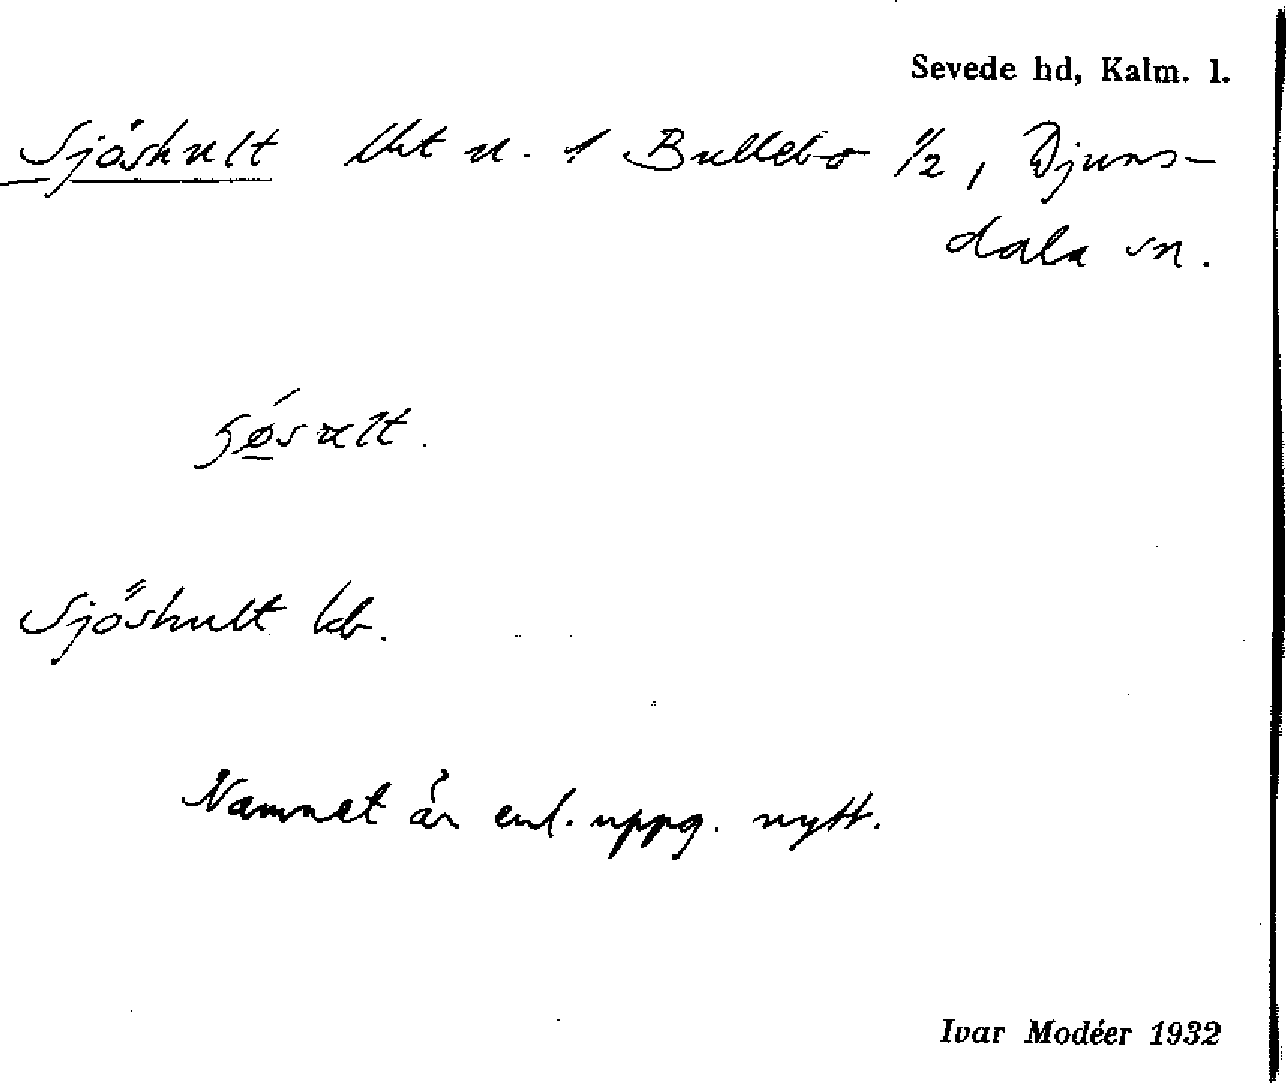 Sevede hd, Kalm. l.
Sjöshult lht u. 1 Bullebo 1/2, Djurs-
dala sn.
Sjöshult kb.
Namnet är enl. uppg. nytt.
Ivar Modéer 1932